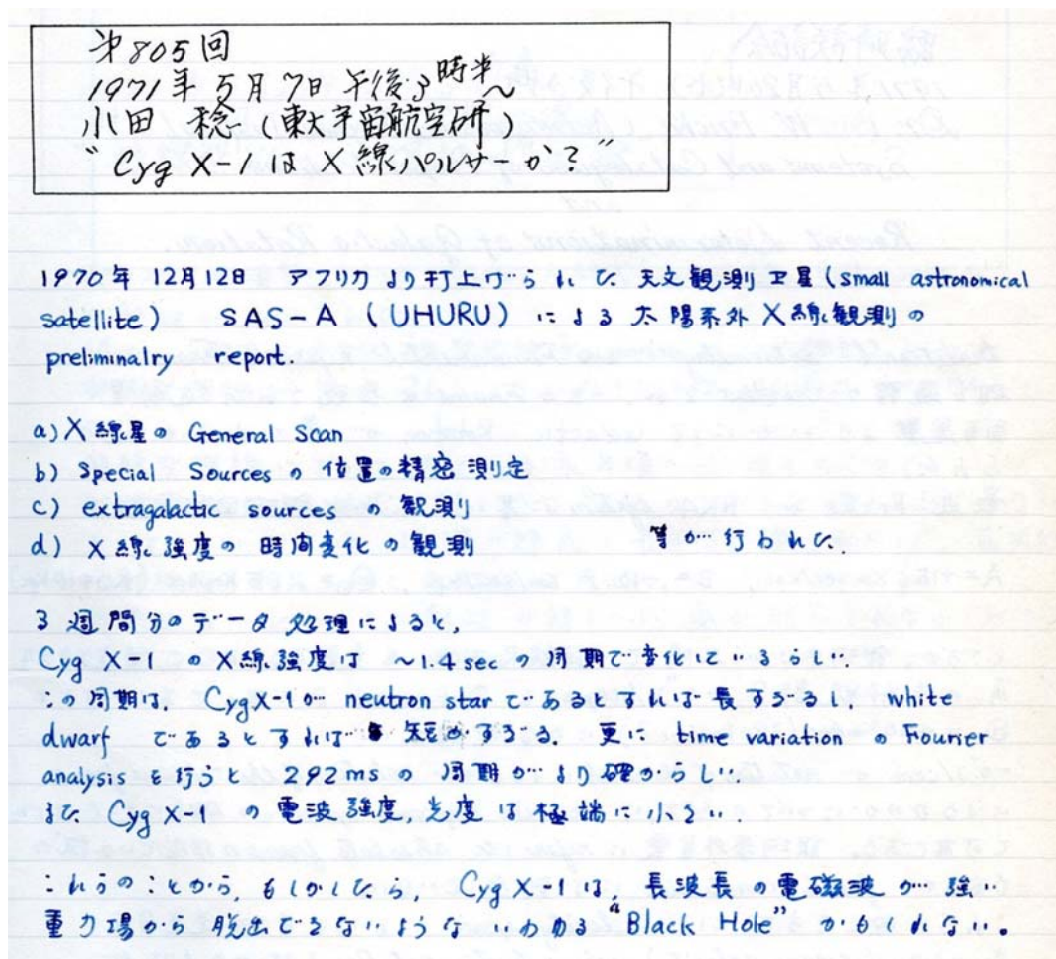 第805回
1971年5月7日午後3時半~
小田 稔 (東大宇宙航空研)
"Cyg X-1は X線パルサーか?"
1970年12月12日 アフリカより打上げられた 天文観測卫星(small astronomical
satellite) SAS-A (UHURU) による 太陽系外X線観測の
preliminalry report.
a) X線星の General Scan
b) Special Sources の 位置の精密測定
c) extragalactic sources の観測
d) X線強度の時間変化の観測 等が行われた.
3週間分のデータ処理によると,
Cyg X-1 のX線強度は ~1.4secの周期で変化しているらしい.
この周期は, Cyg X-1が neutron star であるとすれば長すぎるし, white
dwarf であるとすれば 短かすぎる. 更に time variation の Fourier
analysis を行うと 292msの周期がより確からしい.
また Cyg X-1 の電波強度,光度は極端に小さい.
これらのことから, もしかしたら, Cyg X-1は,長波長の電磁波が強い
重力場から脱出できないような いわゆる "Black Hole" かもしれない。